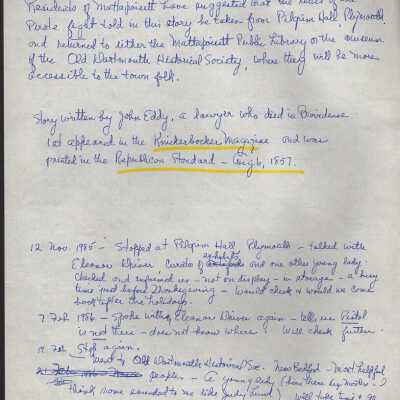 Residents of Mattapoisett have suggested that the relics of the
Pirate fight told in this story be taken from Pilgrim Hall Plymouth
and returned to either the Mattapoisett Public Library or the museum
of the Old Dartmouth Historical Society, where they will be more
accessible to the town folk.
Story written by John Eddy, a lawyer who died in Providence
1st appeared in the Knickerbocker Magazine and was
printed in the Republican Standard - Aug 6, 1857.
12 Nov. 1985 - Stopped at Pilgrim Hall Plymouth - talked with
Eleanor Driver Curator of exhibits and one other young lady.
Checked and informed us - not on display - in storage - a busy
time just before Thanksgiving - would check & would we come
back after the holidays.
7 Feb 1986 - Spoke with Eleanor Driver again - tells me Pistol
is not there - does not know where will check further.
19 Feb Stop again.
Went to Old Dartmouth Historical Soc. New Bedford - Most helpful
people. - A young lady
think some sounded to me like Judy